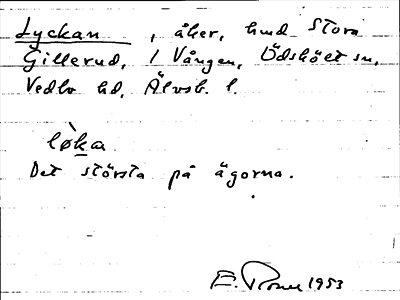 Lyckan, åker, hmd Stora
Gillerud, 1 Vången, Ödskölt sn,
Vedbo hd, Älvsb. l.
lø̀ka
Det största på ägorna.
E. 1953